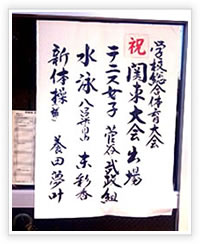 学校総合体育大会
祝 関東大会出場
テニス女子 菅谷 武政組
水泳 東 彩香
新体操 養田夢叶